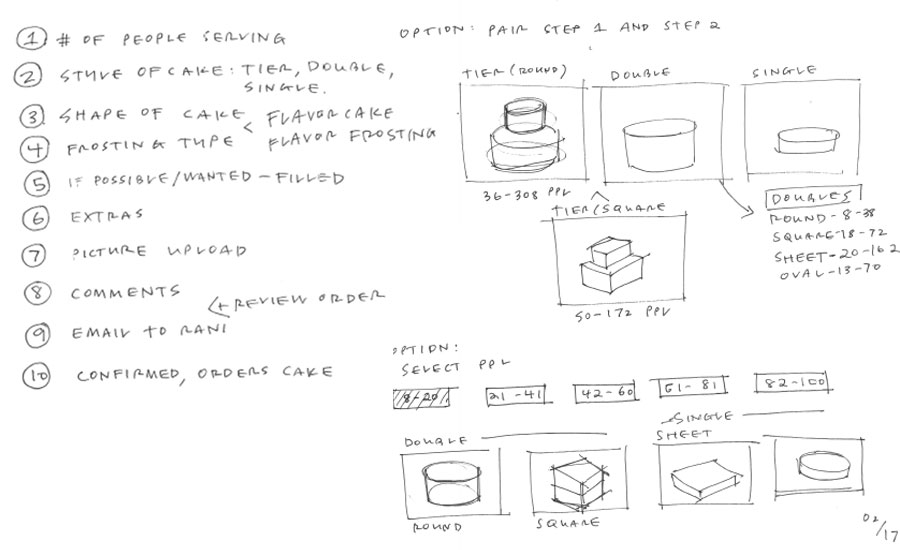 1 # OF PEOPLE SERVING
2 STYLE OF CAKE: TIER, DOUBLE,
SINGLE.
3 SHAPE OF CAKE < FLAVOR CAKE
4 FROSTING TYPE FLAVOR FROSTING
5 IF POSSIBLE/WANTED - FILLED
6 EXTRAS
7 PICTURE UPLOAD
8 COMMENTS
< + REVIEW ORDER
9 EMAIL TO RANI
10 CONFIRMED, ORDERS CAKE
OPTION: PAIR STEP 1 AND STEP 2
TIER (ROUND) DOUBLE SINGLE
36-308 PPL
TIER/SQUARE
50-172 PPL
DOUBLES
ROUND - 8-38
SQUARE-18-72
SHEET-20-162
OVAL-13-70
OPTION:
SELECT PPL
8-20 21-41 42-60 61-81 82-100
DOUBLE SINGLE
SHEET
ROUND SQUARE
02/17